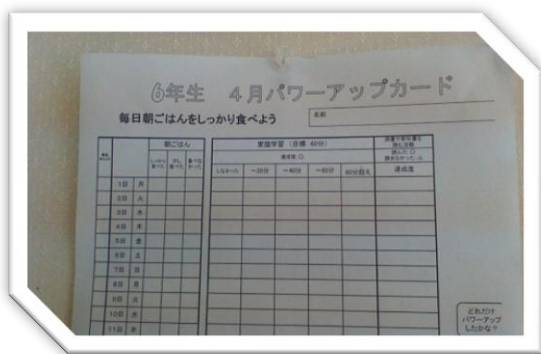 6年生 4月パワーアップカード
毎日朝ごはんをしっかり食べよう
名前
朝ごはん
家庭学習(目標 60分)
達成度 ○
しっかり食べた
少し食べた
食べなかった
しなかった ～20分 ～40分 ～60分 60分以上
達成度
1日 月
2日 火
3日 水
4日 木
5日 金
6日 土
7日 日
8日 月
9日 火
10日 水
11日 木
どれだけ
パワーアップ
したかな?